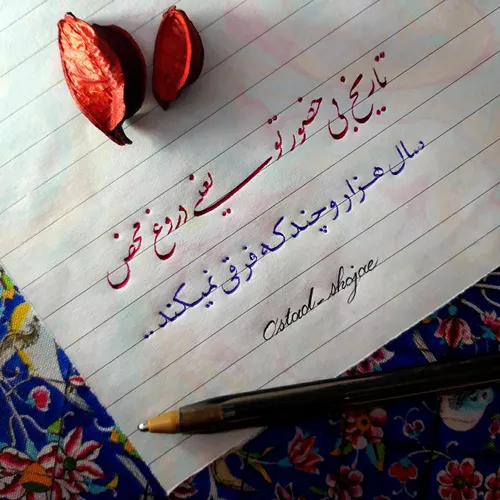 تاریخ بی حضور تو یعنی دروغ محض
سال هزار و چند که فرقی نمیکند...
Ostad_shojae